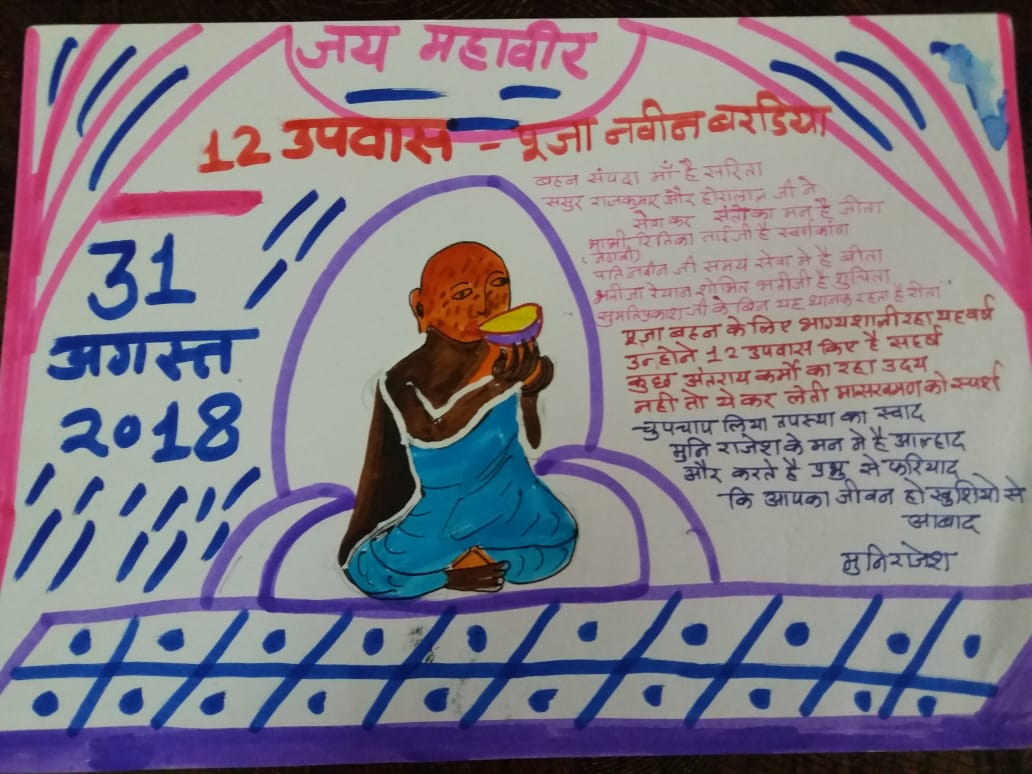 जय महावीर
12 उपवास - पूजा नवीन बरडिया
31
अगस्त
2018
बहन संपदा माँ है सरिता
ससुर राजकुमार और हीरालाल जी ने
सेवा कर संतो का मन है जीता
भाभी रितिका ताईजी है स्वर्णकांता
पति नवीन जी समय सेवा मे है बीता
भतीजा रेयान शोभित भतीजी है शुचिता
सुमतिप्रकाश जी के बिन यह स्थानक रहता है रीता
पूजा बहन के लिए भाग्यशाली रहा यह वर्ष
उन्होने 12 उपवास किए है सहर्ष
कुछ अंतराय कर्मो का रहा उदय
नही तो ये कर लेती मासखमण को स्पर्श
चुपचाप लिया तपस्या का स्वाद
मुनि राजेश के मन मे है आल्हाद
और करते है प्रभु से फरियाद
कि आपका जीवन हो खुशियो से
आबाद
मुनि राजेश